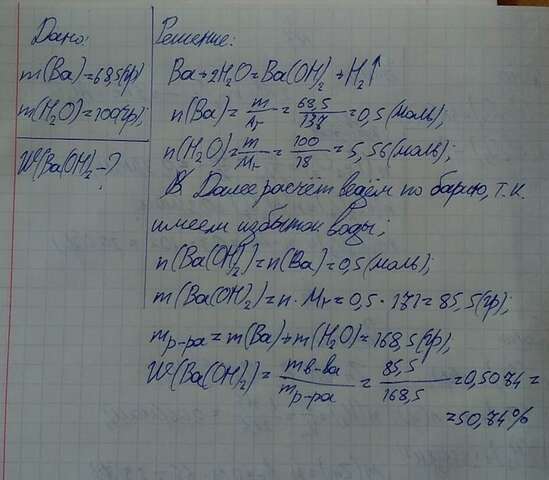 Дано:
m(Ba)=68,5(гр)
m(H₂O)=100(гр);
W(Ba(OH)₂-?
Решение:
Ba+2H₂O=Ba(OH)₂+H₂↑
n(Ba)=m/Mr=68,5/137=0,5(моль);
n(H₂O)=m/Mr=100/18=5,56(моль);
Далее расчёт ведём по барию, т.к.
имеем избыток воды;
n(Ba(OH)₂)=n(Ba)=0,5(моль);
m(Ba(OH)₂)=n·Mr=0,5·171=85,5(гр);
mр-ра=m(Ba)+m(H₂O)=168,5(гр);
W(Ba(OH)₂)=mв-ва/mр-ра=85,5/168,5=0,5074=
=50,74%